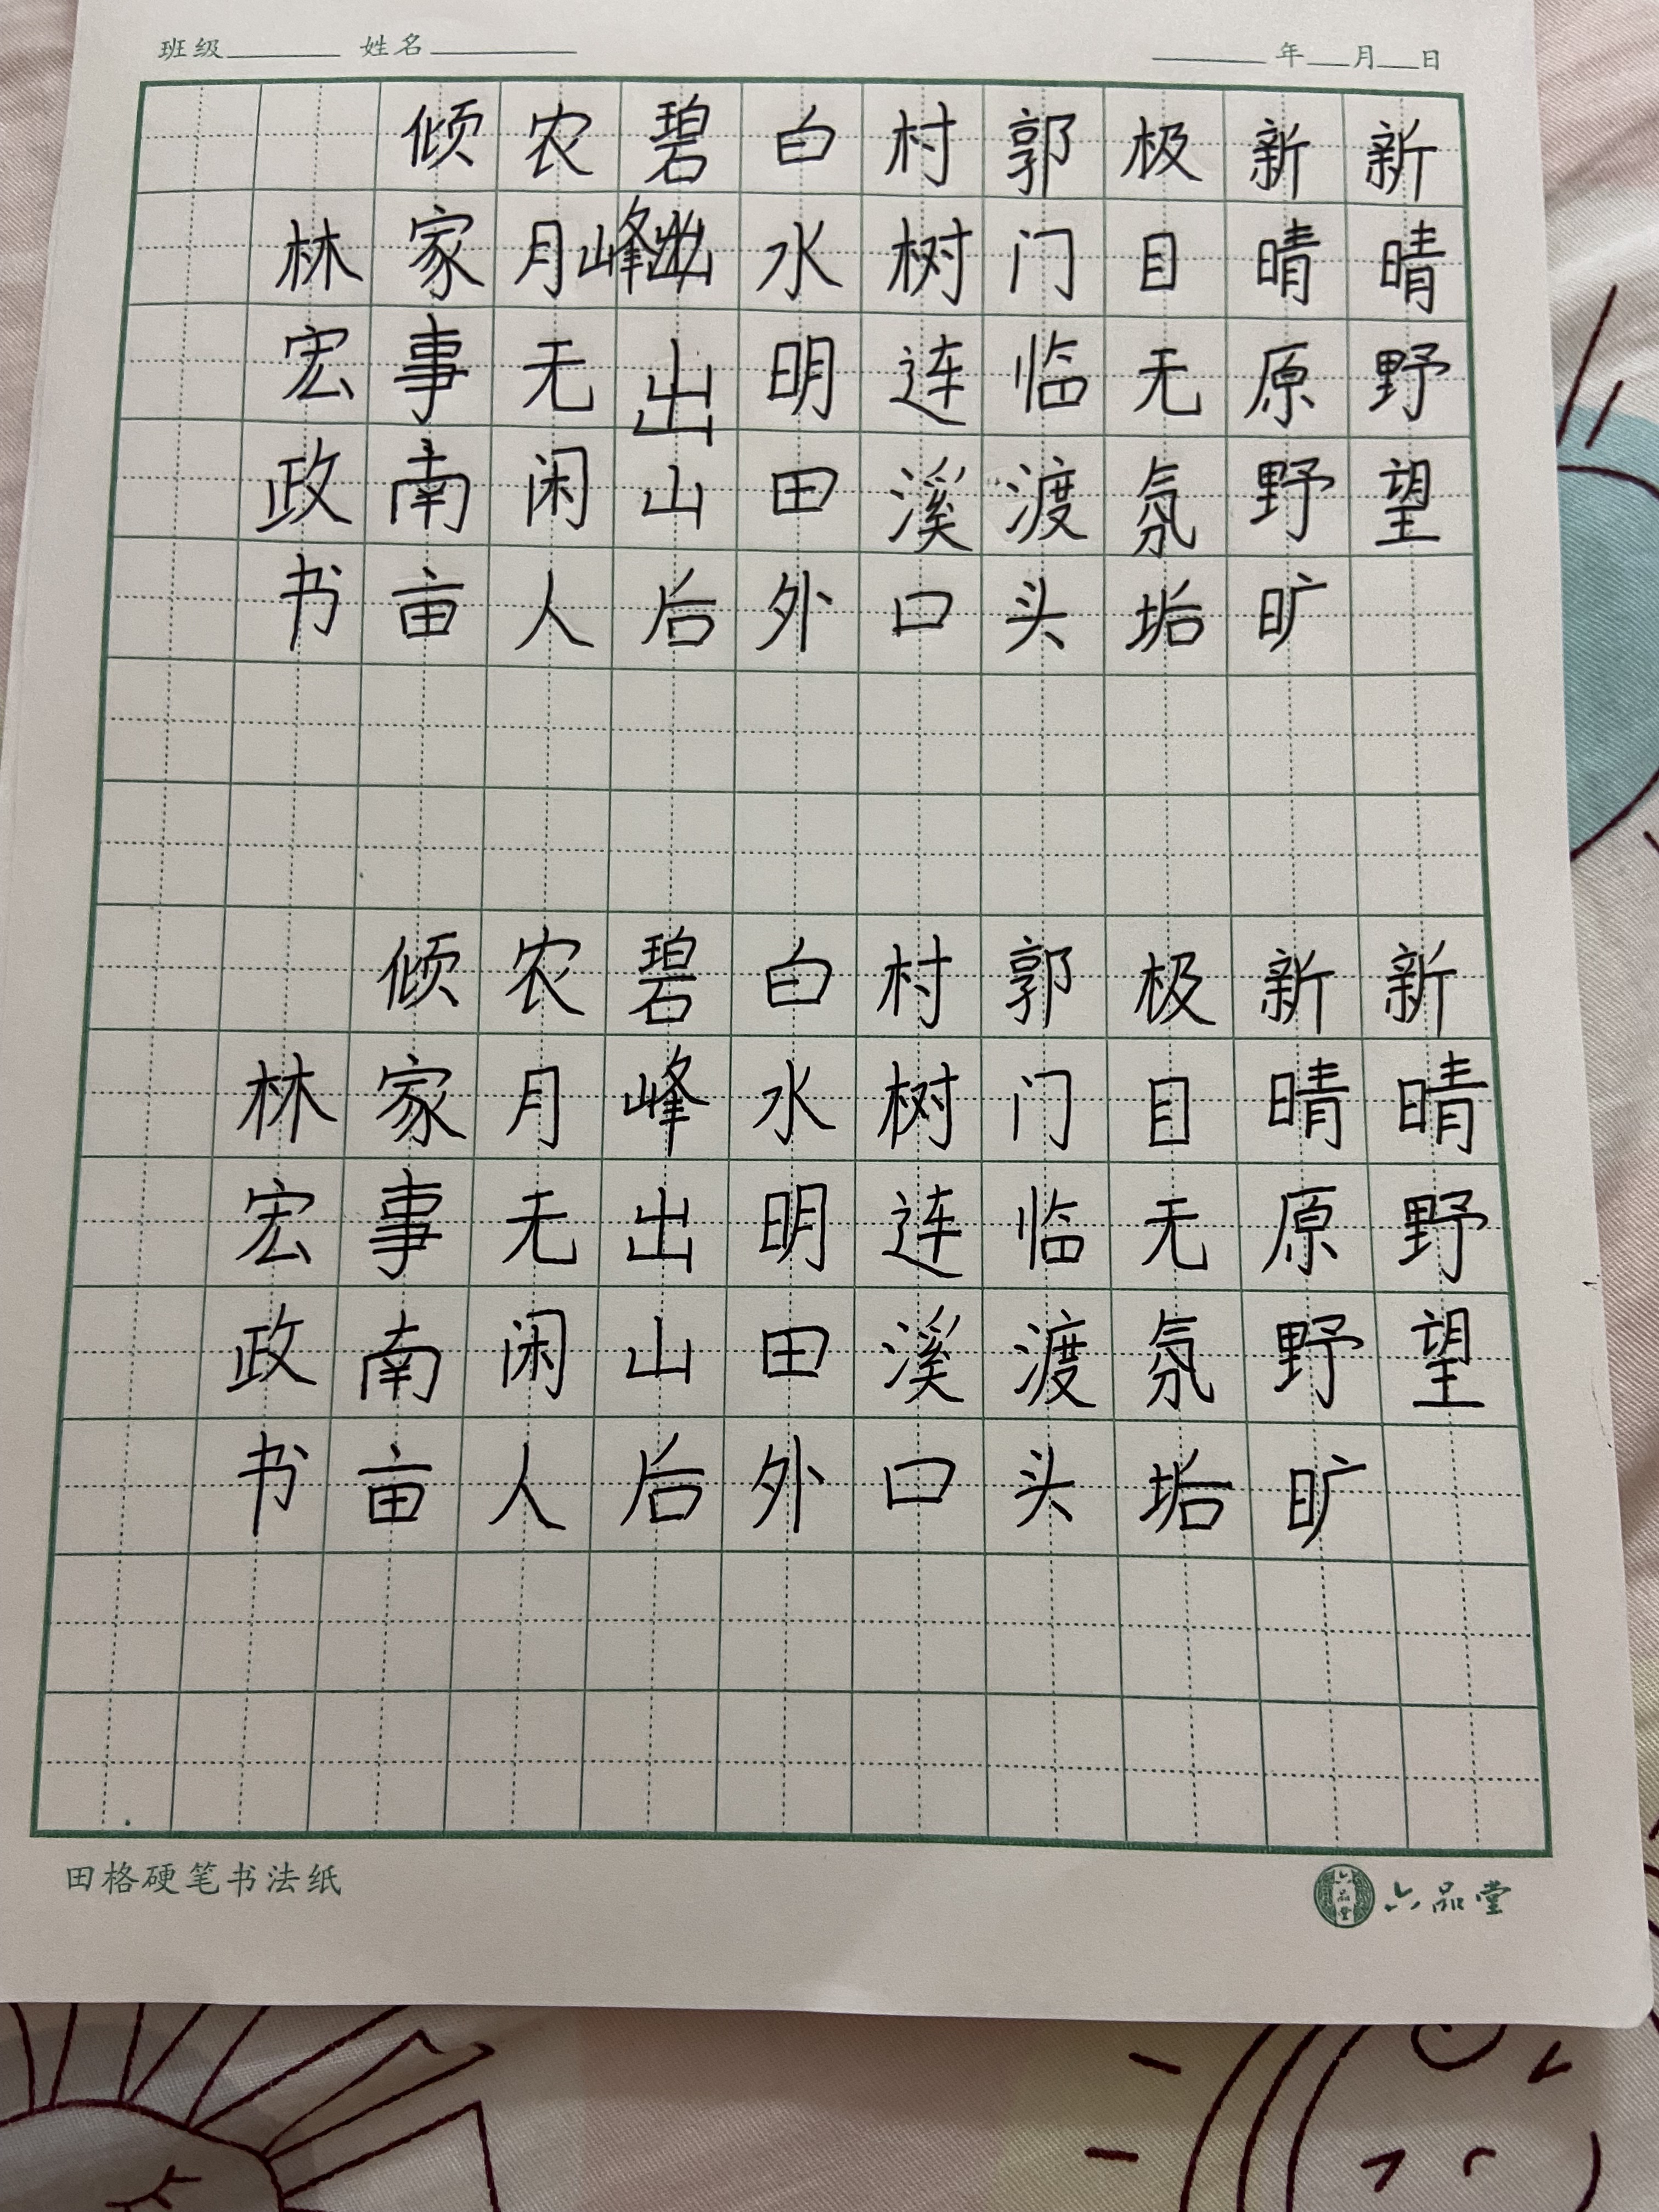 班级 姓名 年 月 日
新晴野望
新晴原野旷
极目无氛垢
郭门临渡头
村树连溪口
白水明田外
碧峰出山后
农月无闲人
倾家事南亩
林宏政书
新晴野望
新晴原野旷
极目无氛垢
郭门临渡头
村树连溪口
白水明田外
碧峰出山后
农月无闲人
倾家事南亩
林宏政书
田格硬笔书法纸
六品堂
六品堂